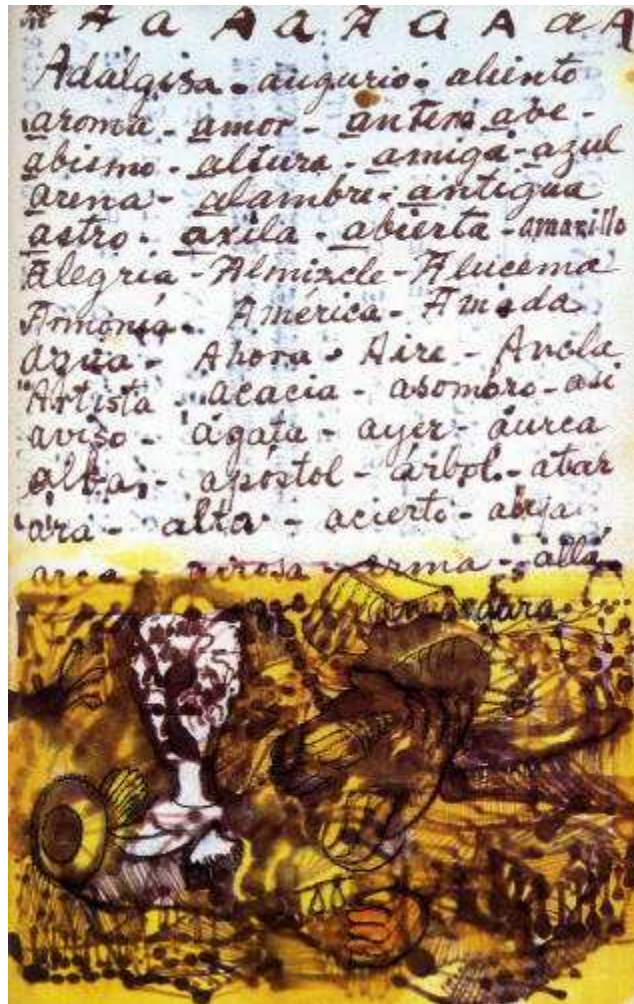 A a A a A a A a A
Adalgisa - augurio - aliento
aroma - amor - antena ave -
abismo - altura - amiga - azul
arena - alambre - antigua
astro - axila - abierta - amarillo
Alegria - Almizcle - Alucema
Armonía - América - Amada
agua - Ahora - Aire - Ancla
Artista - acacia - asombro - asi
aviso - ágata - ayer - áurea
alba - apóstol - árbol - atar
ara - alta - acierto - abeja
arca - airosa - arma - allá